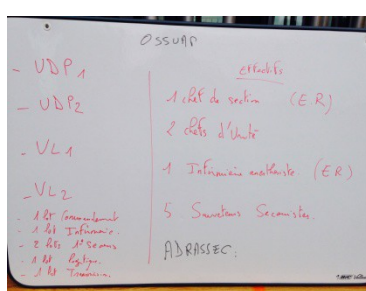 OSSUAP
- UDP1
- UDP2
- VL1
- VL2
- 1 lot Commandement
- 1 lot Infirmerie.
- 2 lots 1er Secours
- 1 lot
- 1 lot
effectifs
1 chef de section (E.R)
2 chefs d'Unité
1 Infirmière anesthésiste (E.R)
5 Sauveteurs Secouristes.
ADRASSEC: